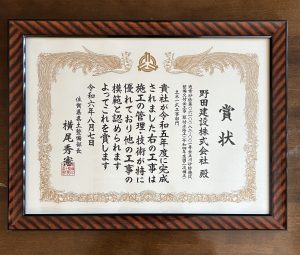 賞状
野田建設株式会社 殿
土木一式工事部門
貴社が令和五年度に完成
されました右の工事は
施工の管理、技術が特に
優れており他の工事の
模範と認められます
よってこれを賞します
令和六年八月七日
佐賀県県土整備部長
横尾秀憲